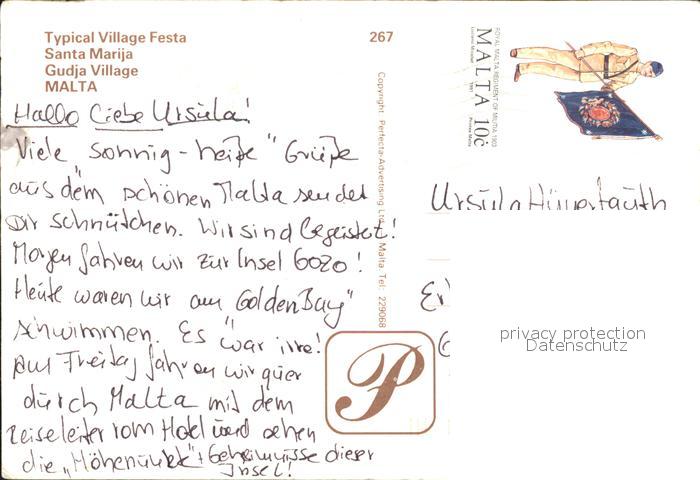 Typical Village Festa
Santa Marija
Gudja Village
MALTA
267
Copyright Perfecta-Advertising Ltd. Malta Tel: 229068
ROYAL MALTA REGIMENT OF MILITIA 1903
MALTA 10c
1991
Hallo Liebe Ursula!
Viele "sonnig-heiße" Grüße
aus dem schönen Malta sendet
Dir Schnütchen. Wir sind begeistert!
Morgen fahren wir zur Insel Gozo!
Heute waren wir am "Golden Bay"
schwimmen. Es war irre!
Am Freitag fahren wir quer
durch Malta mit dem
Reiseleiter vom Hotel und sehen
die "Höhepunkte" + Geheimnisse dieser
Insel!
Ursula
P
privacy protection
Datenschutz